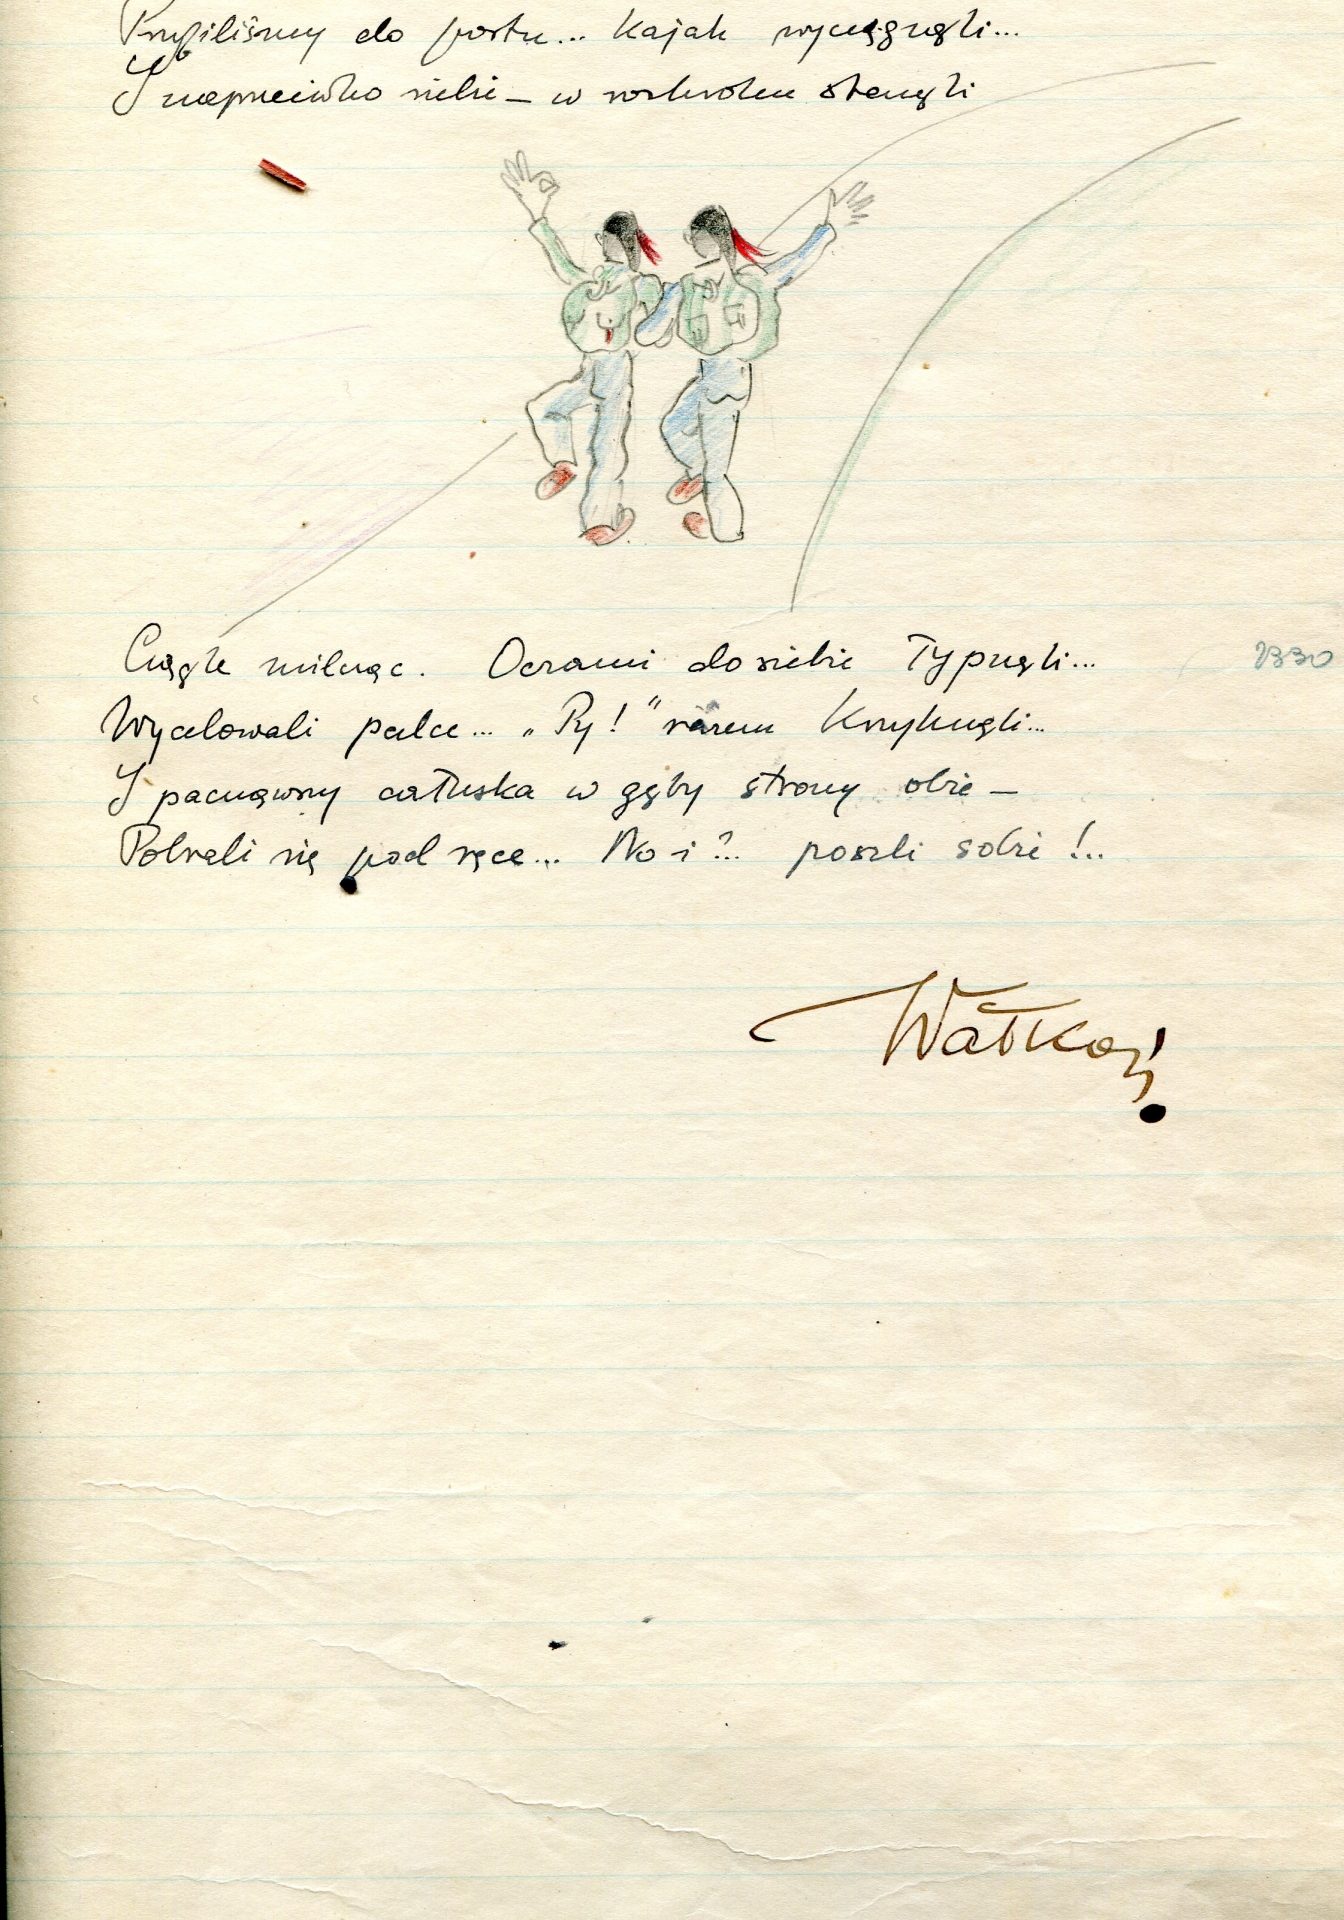 Przybiliśmy do portu... Kajak wyciągnęli...
I naprzeciwko siebie – w rozkroku stanęli
Ciągle milcząc. Oczami do siebie łypnęli... 2330
Wycelowali palce... „Py!" razem krzyknęli...
I pacnąwszy całuska w gęby strony obie –
Pobrali się pod ręce... No i?... poszli sobie!..